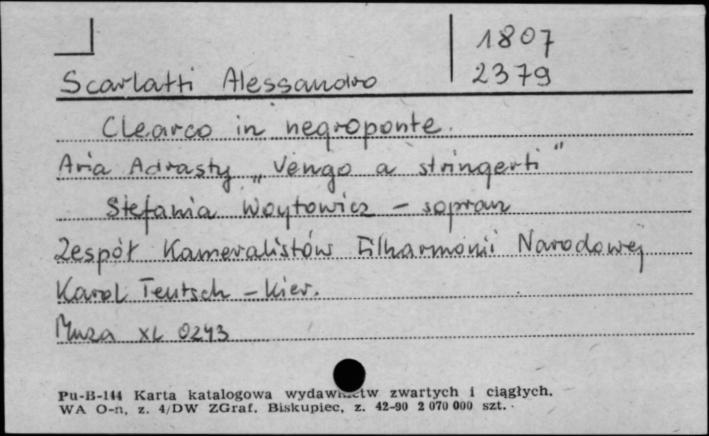 1807
2379
Scarlatti Alessandro
Clearco in negroponte.
Aria Adrasty „Vengo a stringerti"
Stefania Woytowicz - sopran
Zespół Kameralistów Filharmonii Narodowej
Karol Teutsch - kier.
Muza XL 0243
Pu-B-144 Karta katalogowa wydawnictw zwartych i ciągłych.
WA O-n, z. 4/DW ZGraf. Biskupiec, z. 42-90 2 070 000 szt.